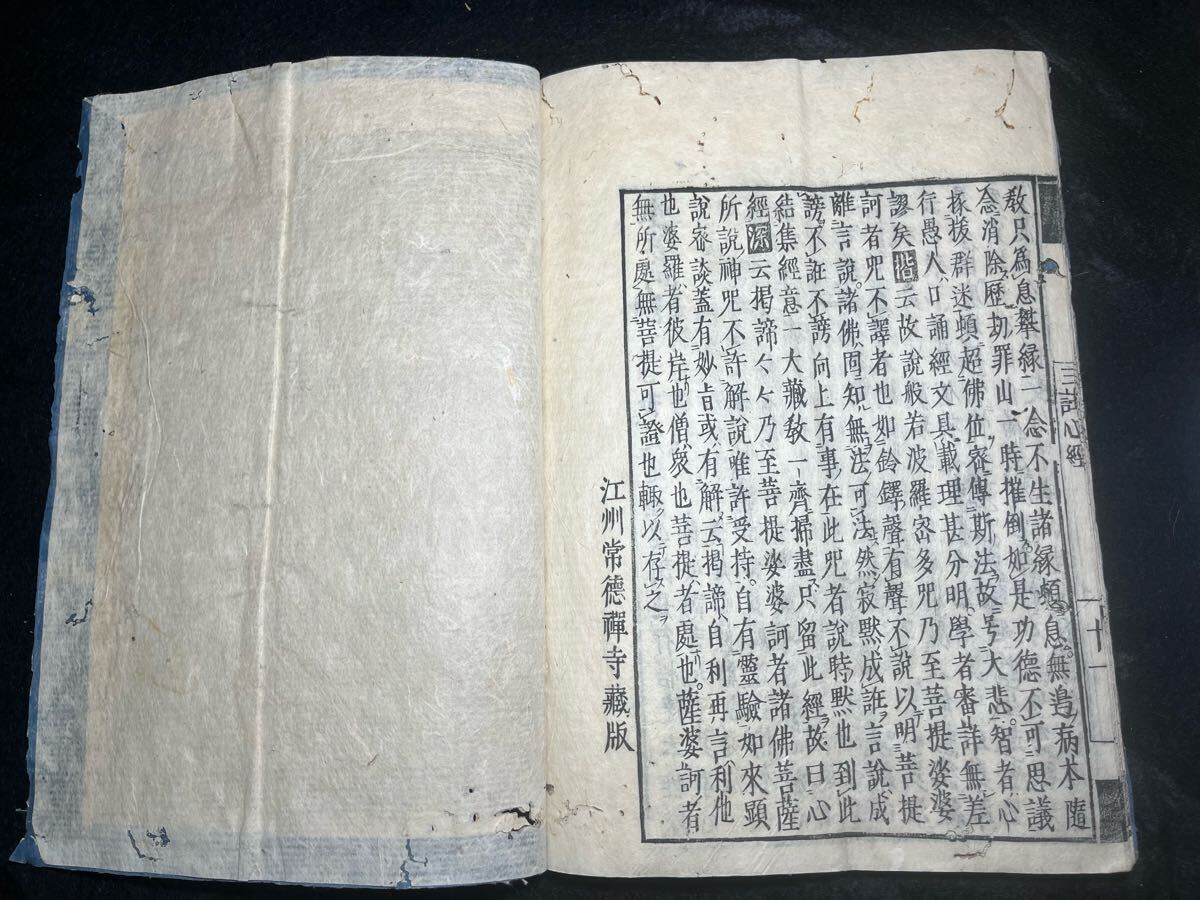 教只爲息攀縁一念不生諸縁頓息無邉病本隨
念消除歴劫罪山一時摧倒如是功德不可思議
捄拔群迷頓超佛位密傳斯法故号大悲智者心
行愚人口誦經文具載理甚分明學者審詳無差
謬矣楷云故說般若波羅密多咒乃至菩提娑婆
訶者咒不譯者也如鈴鐸聲有聲不說以明菩提
離言說諸佛固知無法可法然寂默成誑言說成
謗不誑不謗向上有事在此咒者說時默也到此
結集經意一大藏教一齊掃盡只留此經故曰心
經深云揭諦々々乃至菩提娑婆訶者諸佛菩薩
所說神咒不許解說唯許受持自有靈驗如來顯
說密談蓋有妙旨或有解云揭諦自利再言利他
也婆羅者彼岸也僧衆也菩提者處也薩婆訶者
無所處無菩提可證也輙以存之
江州常德禪寺藏版
三註心經
十一